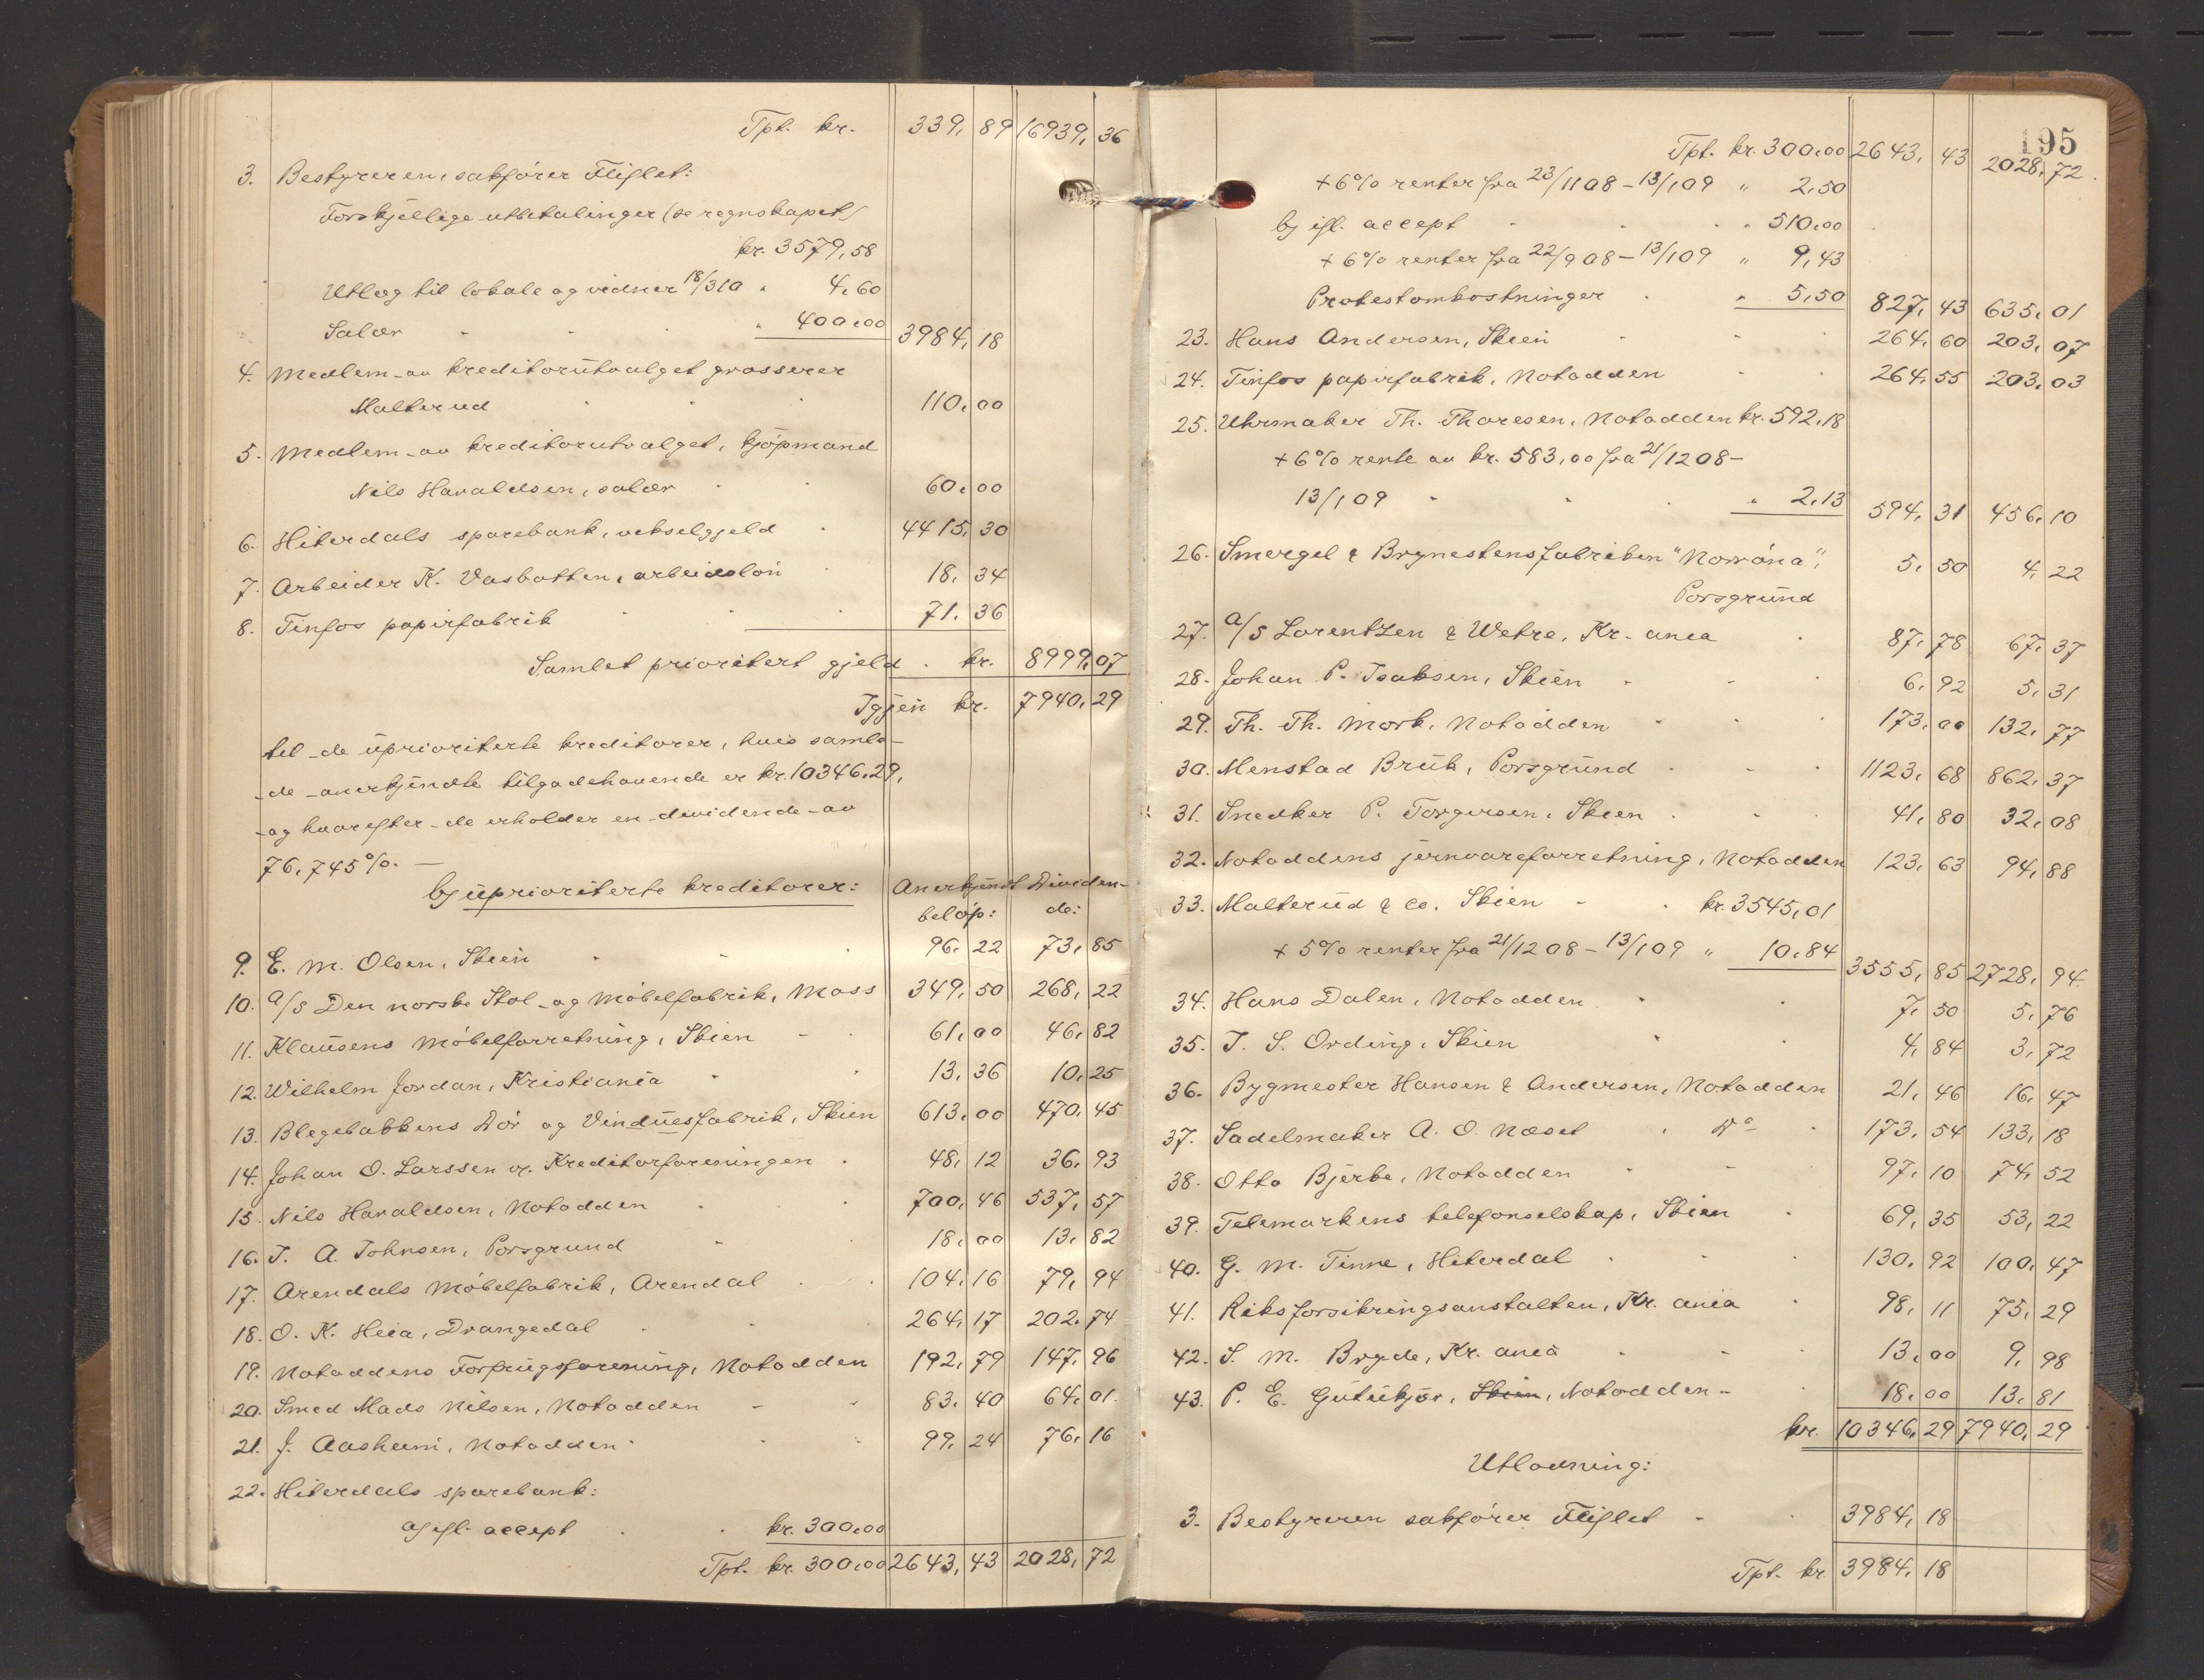 Tpt. kr. 339,89 16939,36
3. Bestyreren, sakfører Fliflet:
Forskjellige utbetalinger (se regnskapet)
kr. 3579,58
Utlæg til lokale og vidner 18/3 10 " 4,60
Salær " 400,00 3984,18
4. Medlem av kreditorutvalget grosserer
Malterud 110,00
5. Medlem av kreditorutvalget, kjøpmand
Nils Haraldsen, salær 60,00
6. Hiterdals sparebank, vekselgjeld 4415,30
7. Arbeider K. Vasbotten, arbeidsløn 18,34
8. Tinfos papirfabrik 71,36
Samlet prioritert gjeld kr. 8999,07
Igjen kr. 7940,29
til de uprioriterte kreditorer, hvis samle-
de anerkjendte tilgodehavende er kr. 10346,29,
og hvorefter de erholder en dividende av
76,745%. —
b) uprioriterte kreditorer: Anerkjendt Dividen-
beløp: de:
9. E. M. Olsen, Skien 96,22 73,85
10. A/S Den norske Stol- og Møbelfabrik, Moss 349,50 268,22
11. Klausens Møbelforretning, Skien 61,00 46,82
12. Wilhelm Jordan, Kristiania 13,36 10,25
13. Blegebakkens Dør og Vinduesfabrik, Skien 613,00 470,45
14. Johan O. Larssen v. Kreditorforeningen 48,12 36,93
15. Nils Haraldsen, Notodden 700,46 537,57
16. J. A. Johnsen, Porsgrund 18,00 13,82
17. Arendals Møbelfabrik, Arendal 104,16 79,94
18. O. K. Heia, Drangedal 264,17 202,74
19. Notoddens Forbrugsforening, Notodden 192,79 147,96
20. Smed Mads Nilsen, Notodden 83,40 64,01
21. J. Aasheim, Notodden 99,24 76,16
22. Hiterdals sparebank:
a) ifl. accept kr. 300,00
Tpt. kr. 300,00 2643,43 2028,72
195
Tpt. kr. 300,00 2643,43 2028,72
+ 6% renter fra 23/11 08 – 13/1 09 " 2,50
b) ifl. accept " 510,00
+ 6% renter fra 22/9 08 – 13/1 09 " 9,43
Protestomkostninger " 5,50 827,43 635,01
23. Hans Andersen, Skien 264,60 203,07
24. Tinfos papirfabrik, Notodden 264,55 203,03
25. Uhrmaker Th. Thoresen, Notodden kr. 592,18
+ 6% rente av kr. 583,00 fra 21/12 08 –
13/1 09 " 2,13 594,31 456,10
26. Smergel & Brynestensfabriken "Norrøna", 5,50 4,22
Porsgrund
27. A/S Lorentzen & Wetre, Kr.ania 87,78 67,37
28. Johan P. Isaksen, Skien 6,92 5,31
29. Th. Th. Mork, Notodden 173,00 132,77
30. Menstad Bruk, Porsgrund 1123,68 862,37
31. Snedker P. Torgersen, Skien 41,80 32,08
32. Notoddens jernvareforretning, Notodden 123,63 94,88
33. Malterud & Co. Skien kr. 3545,01
+ 5% renter fra 21/12 08 – 13/1 09 " 10,84 3555,85 2728,94
34. Hans Dalen, Notodden 7,50 5,76
35. J. S. Ording, Skien 4,84 3,72
36. Bygmester Hansen & Andersen, Notodden 21,46 16,47
37. Sadelmaker A. O. Næset Do 173,54 133,18
38. Otto Bjerke, Notodden 97,10 74,52
39. Telemarkens telefonselskap, Skien 69,35 53,22
40. G. M. Tinne, Hiterdal 130,92 100,47
41. Riksforsikringsanstalten, Kr.ania 98,11 75,29
42. S. M. Bryde, Kr.ania 13,00 9,98
43. P. E. Gutukjær, Skien, Notodden 18,00 13,81
kr. 10346,29 7940,29
Utlodning:
3. Bestyreren sakfører Fliflet 3984,18
Tpt. kr. 3984,18